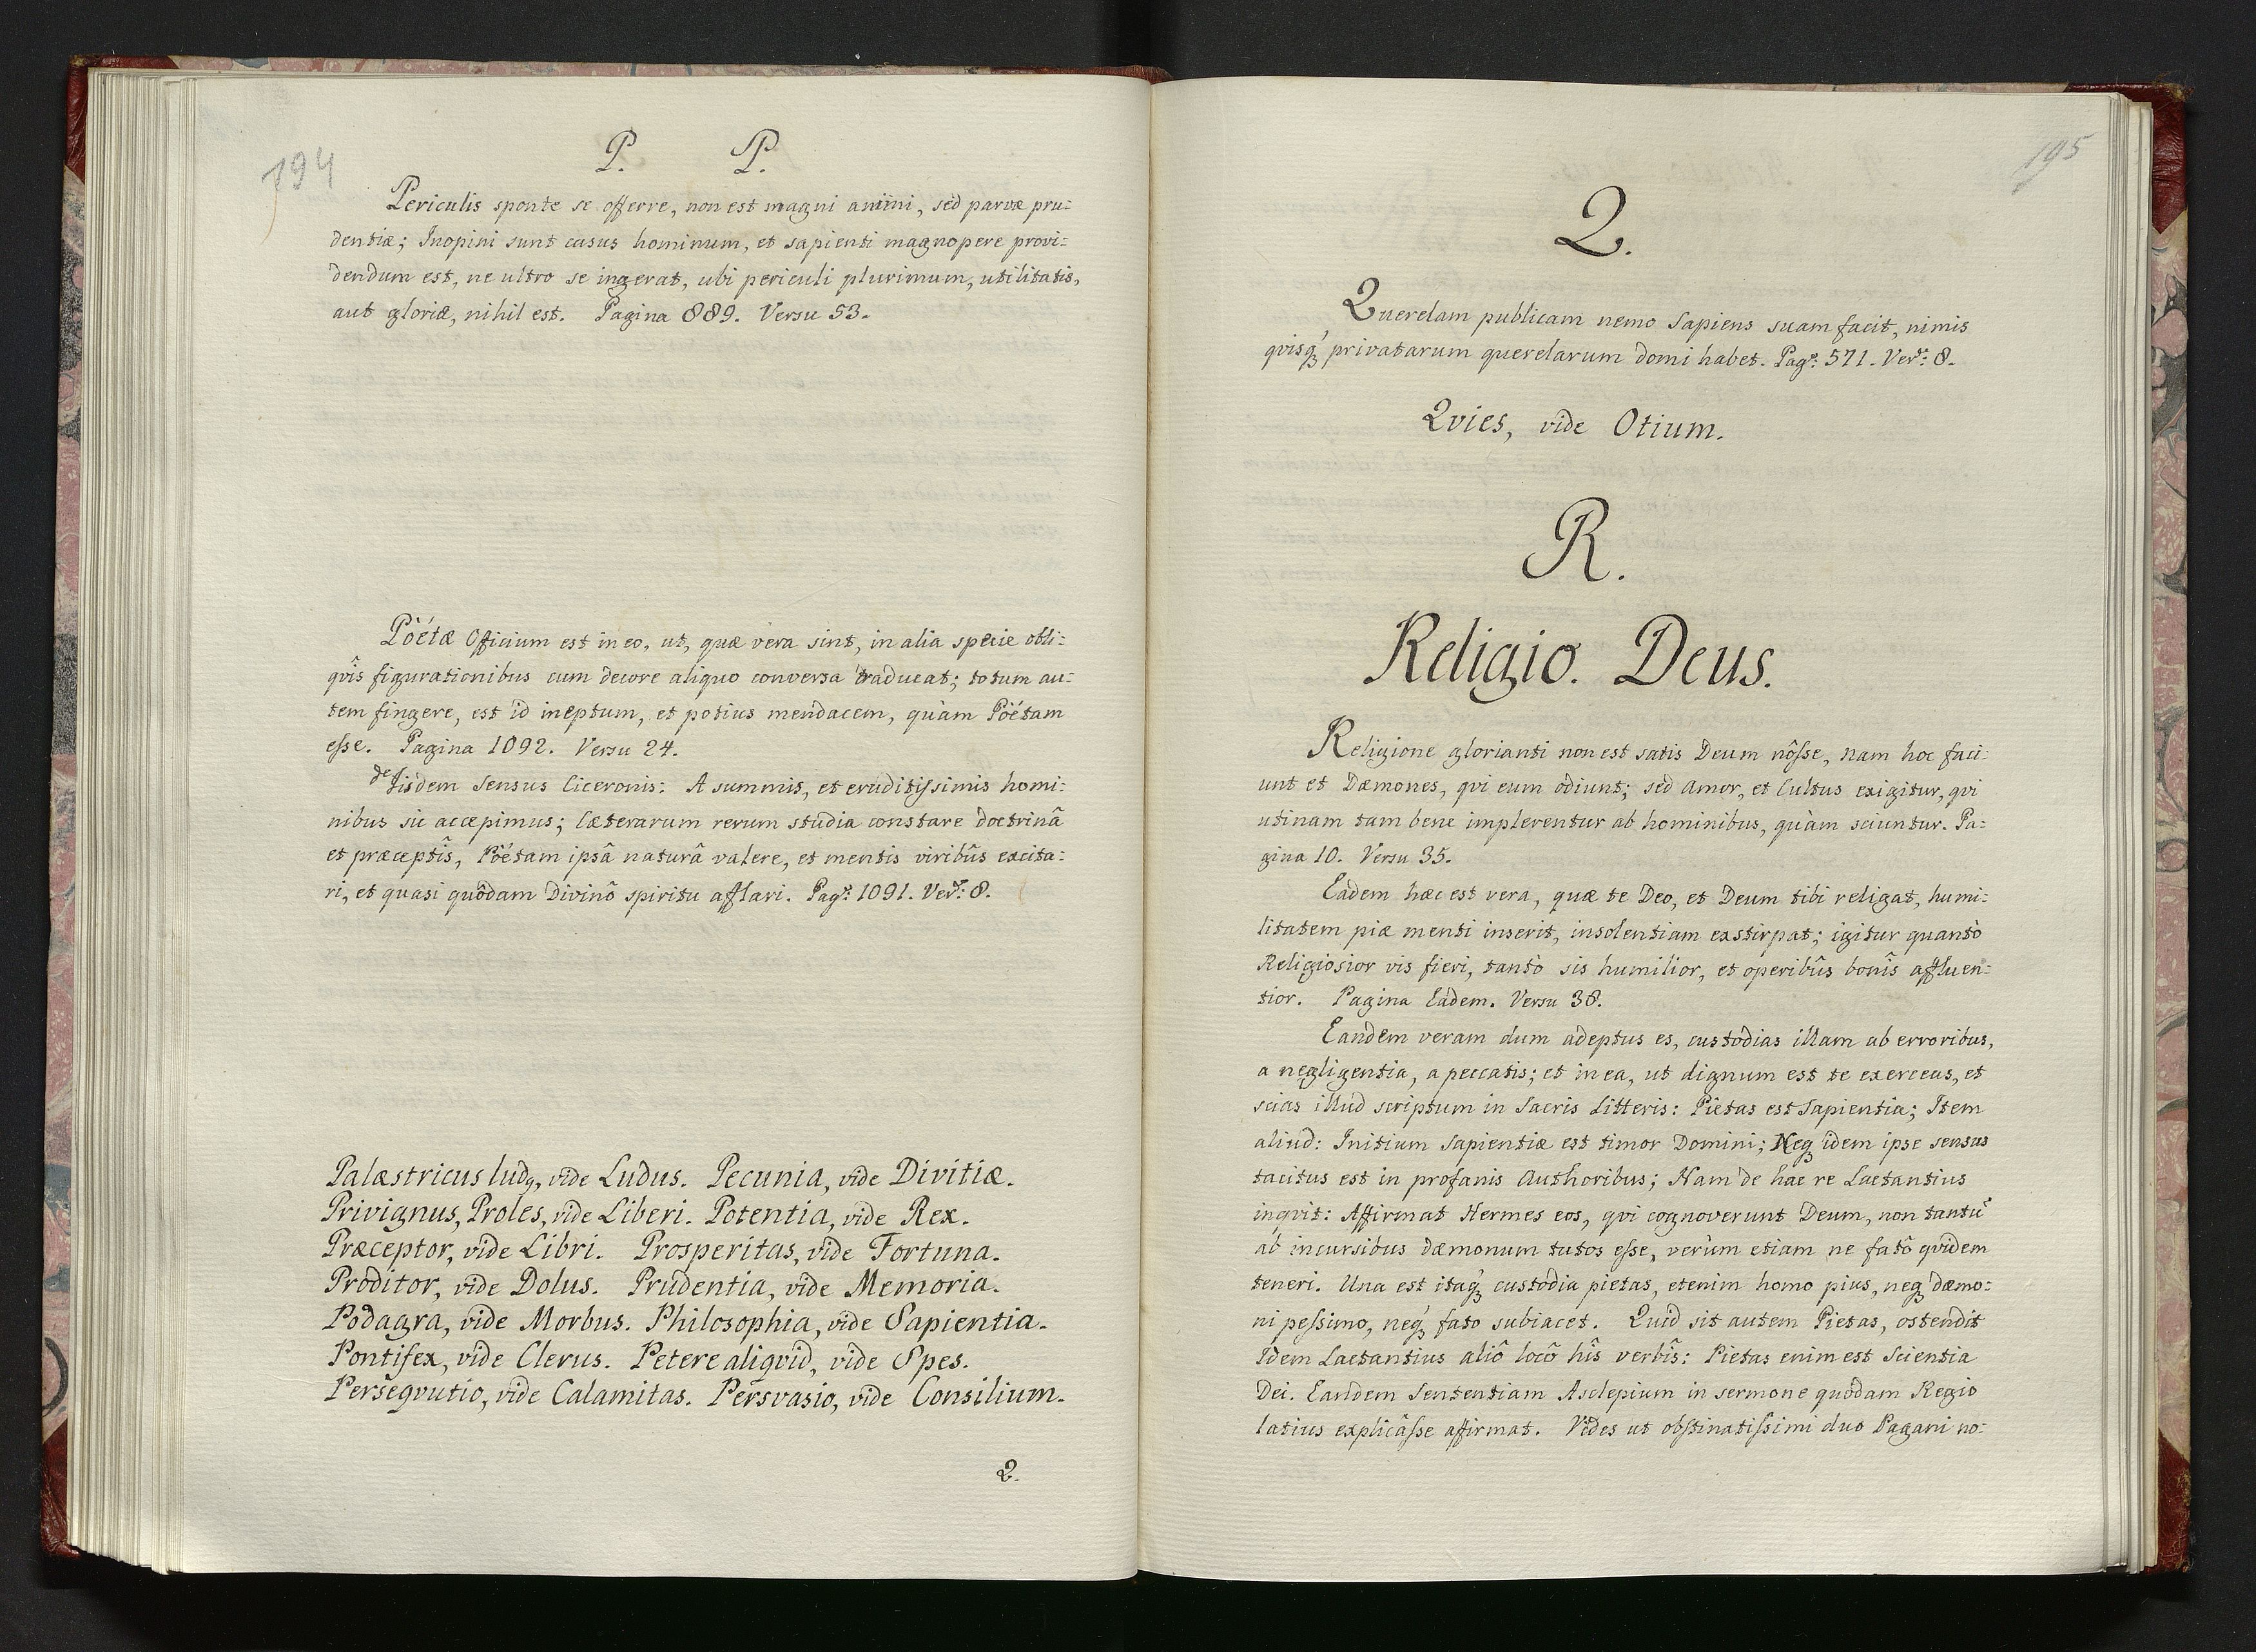 194
P. P.
Periculis sponte se offerre, non est magni animi, sed parvæ pru=
dentiæ; Inopini sunt casus hominum, et sapienti magnopere provi=
dendum est, ne ultro se ingerat, ubi periculi plurimum, utilitatis,
aut gloriæ, nihil est. Pagina 889. Versu 53.
Pöétæ Officium est in eo, ut, quæ vera sint, in alia specie obli=
qvîs figurationibus cum decore aliquo conversa traducat; totum au=
tem fingere, est id ineptum, et potius mendacem, quàm Pöétam
esse. Pagina 1092. Versu 24.
de Iisdem Sensus Ciceronis: A summis, et eruditissimis homi=
nibus sic accepimus; Cæterarum rerum studia constare doctrinâ
et præceptîs, Pöétam ipsâ naturâ valere, et mentis viribûs excita=
ri, et quasi quôdam Divinô spiritu afflari. Pag: 1091. Ver: 8.
Palæstricus ludꝰ, vide Ludus. Pecunia, vide Divitiæ.
Privignus, Proles, vide Liberi. Potentia, vide Rex.
Præceptor, vide Libri. Prosperitas, vide Fortuna.
Proditor, vide Dolus. Prudentia, vide Memoria.
Podagra, vide Morbus. Philosophia, vide Sapientia.
Pontifex, vide Clerus. Petere aliqvid, vide Spes.
Perseqvutio, vide Calamitas. Persvasio, vide Consilium.
Q.
195
Q.
Querelam publicam nemo Sapiens suam facit, nimis
qvisqꝫ privatarum querelarum domi habet. Pag: 571. Ver: 8.
Qvies, vide Otium.
R.
Religio. Deus.
Religione glorianti non est satis Deum nôsse, nam hoc faci=
unt et Dæmones, qvi eum odiunt; sed Amor, et Cultus exigitur, qvi
utinam tam bene implerentur ab hominibus, quàm sciuntur. Pa=
gina 10. Versu 35.
Eadem hæc est vera, quæ te Deo, et Deum tibi religat, humi=
litatem piæ menti inserit, insolentiam exstirpat; igitur quantò
Religiosior vis fieri, tantò sis humilior, et operibûs bonîs affluen=
tior. Pagina Eâdem. Versu 38.
Eandem veram dum adeptus es, custodias illam ab erroribus,
a negligentia, a peccatis; et in ea, ut dignum est te exerceas, et
scias illud scriptum in Sacris Litteris: Pietas est Sapientia; Item
aliud: Initium Sapientiæ est timor Domini; Neqꝫ idem ipse sensus
tacitus est in profanis Authoribus; Nam de hac re Lactantius
inqvit: Affirmat Hermes eos, qvi cognoverunt Deum, non tantũ
ab incursibus dæmonum tutos esse, verùm etiam ne fatô qvidem
teneri. Una est itaqꝫ custodia pietas, etenim homo pius, neqꝫ dæmo=
ni pessimo, neqꝫ fato subiacet. Quid sit autem Pietas, ostendit
Idem Lactantius aliô locô hîs verbîs: Pietas enim est Scientia
Dei. Eandem Sententiam Asclepium in sermone quôdam Regio
latius explicâsse affirmat. Vides ut obstinatissimi duo Pagani no=